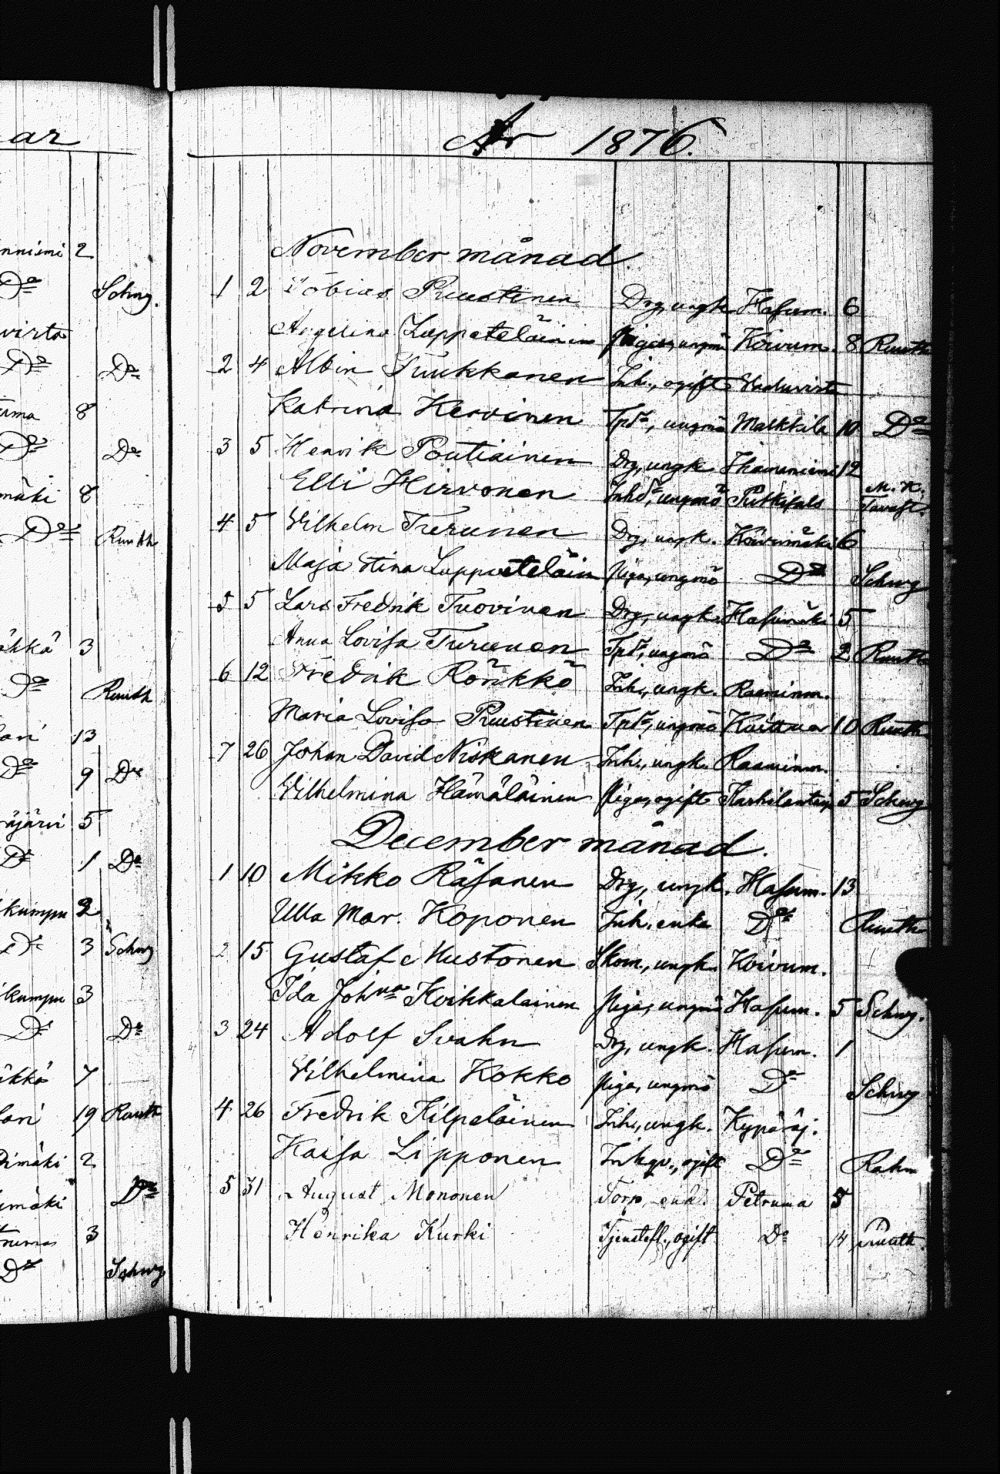 ar
År 1876.
nniemi 2
Do Schwg.
virta
Do Do
8
Do Do
mäki 8
Do Ruuth
ähkä 3
Do Ruuth
13
Do 9 Do
äjärvi 5
Do 1 Do
kumpu 2
Do 3 Schwg
kumpu 3
Do Do
7
19 Ruuth
mäki 2
mäki Do
3
Do Schwg
November månad.
1 2 Tobias Puustinen Drg, ungk Hasum. 6
Angelina Luppeteläinen Piga, ungmö Koivum. 8 Ruuth
2 4 Albin Tuukkanen Inh., ogift
Katrina Hervinen Tpdr, ungmö Markkila 10 Do
3 5 Henrik Poutiainen Drg, ungk 12
Elli Hirvonen Inhdr, ungmö M. K.
4 5 Vilhelm Turunen Drg, ungk. Koivumäki 6
Maja Stina Luppeteläin Piga, ungmö Do Schwg
5 5 Lars Fredrik Tuovinen Drg, ungk. Hasumäki 5
Anna Lovisa Turunen Tpdr, ungmö Do 2 Ruuth
6 12 Fredrik Rönkkö Inh., ungk. Raaminm.
Maria Lovisa Puustinen Tpdr, ungmö 10 Ruuth
7 26 Johan David Niskanen Inh., ungk. Raaminm.
Vilhelmina Hämäläinen Piga, ogift 5 Schwg
December månad.
1 10 Mikko Räsänen Drg, ungk. Hasum. 13
Ulla Mar. Koponen Inh., enka Do Ruuth
2 15 Gustaf Mustonen Skom., ungk. Koivum.
Ida Johna Koikkalainen Piga, ungmö Hasum. 5 Schwg.
3 24 Adolf Svahn Drg, ungk. Hasum. 1
Vilhelmina Kokko Piga, ungmö Do Schwg
4 26 Fredrik Kilpeläinen Inh., ungk. Kypäräj.
Kaisa Lipponen Inhqv., ogift Do Rahm
5 31 August Mononen Torp. enkl. Petruma 5
Henrika Kurki Tjenstefl., ogift Do 14 Ruuth